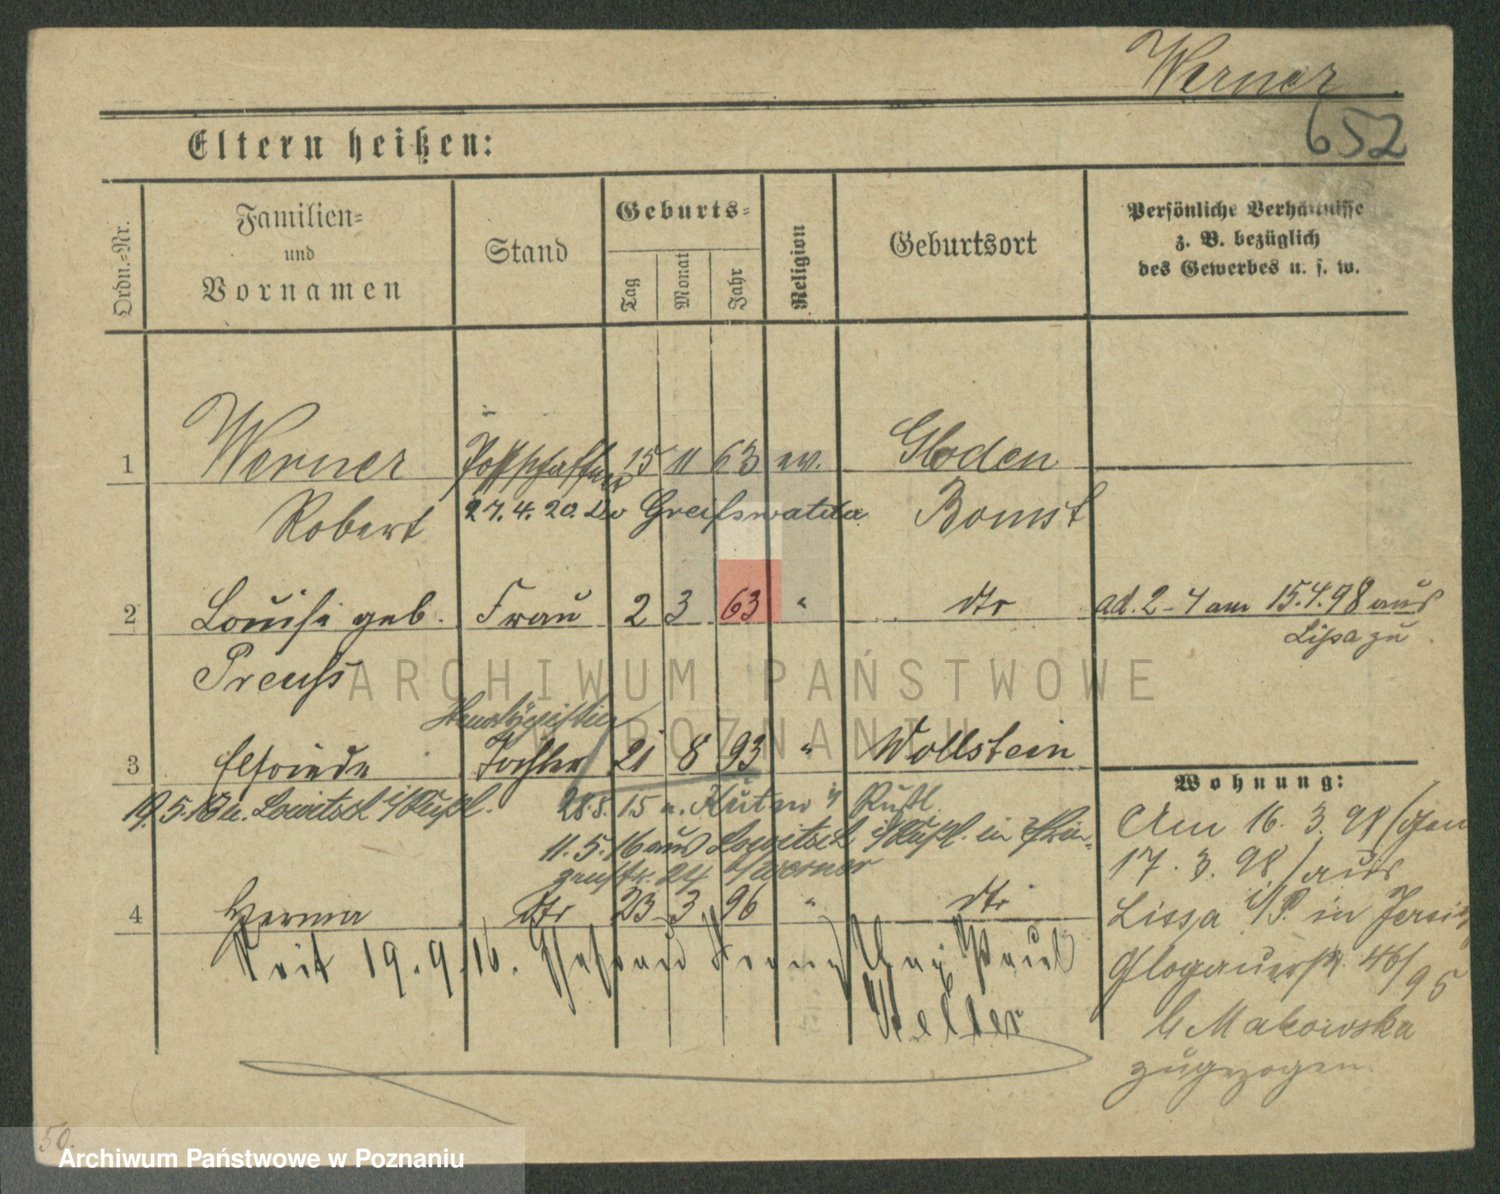 Werner
652
Eltern heißen:
Ordn.-Nr.
Familien-
und
Vornamen
Stand
Geburts-
Tag
Monat
Jahr
Religion
Geburtsort
Persönliche Verhältnisse
z. B. bezüglich
des Gewerbes u. s. w.
1 Werner Postschaffner 15 11 63 ev. Gloden
Robert 27.4.20. Greifswalde Bomst
2 Louise geb. Frau 2 3 63 " dto ad. 2-4 am 15.4.98 aus
Lissa zu
Preuß
ARCHIWUM PAŃSTWOWE
W POZNANIU
3 Elfriede Tochter 21 8 93 " Wollstein
Wohnung:
19.5.16 n. Lowitsch i/Rußl. 28.8.15 n. Kutno i/ Rußl.
11.5.16 aus Lowitsch i/Rußl. in
24 b/Werner
4 Herma dto 23 3 96 " dto
Seit 19.9.16. Ehefrau Paul
Am 16.3.98 /
17.3.98 / aus
Lissa i/P. in Jersitz
Glogauerstr. 46/
95
b Makowska
zugezogen.
50.
Archiwum Państwowe w Poznaniu